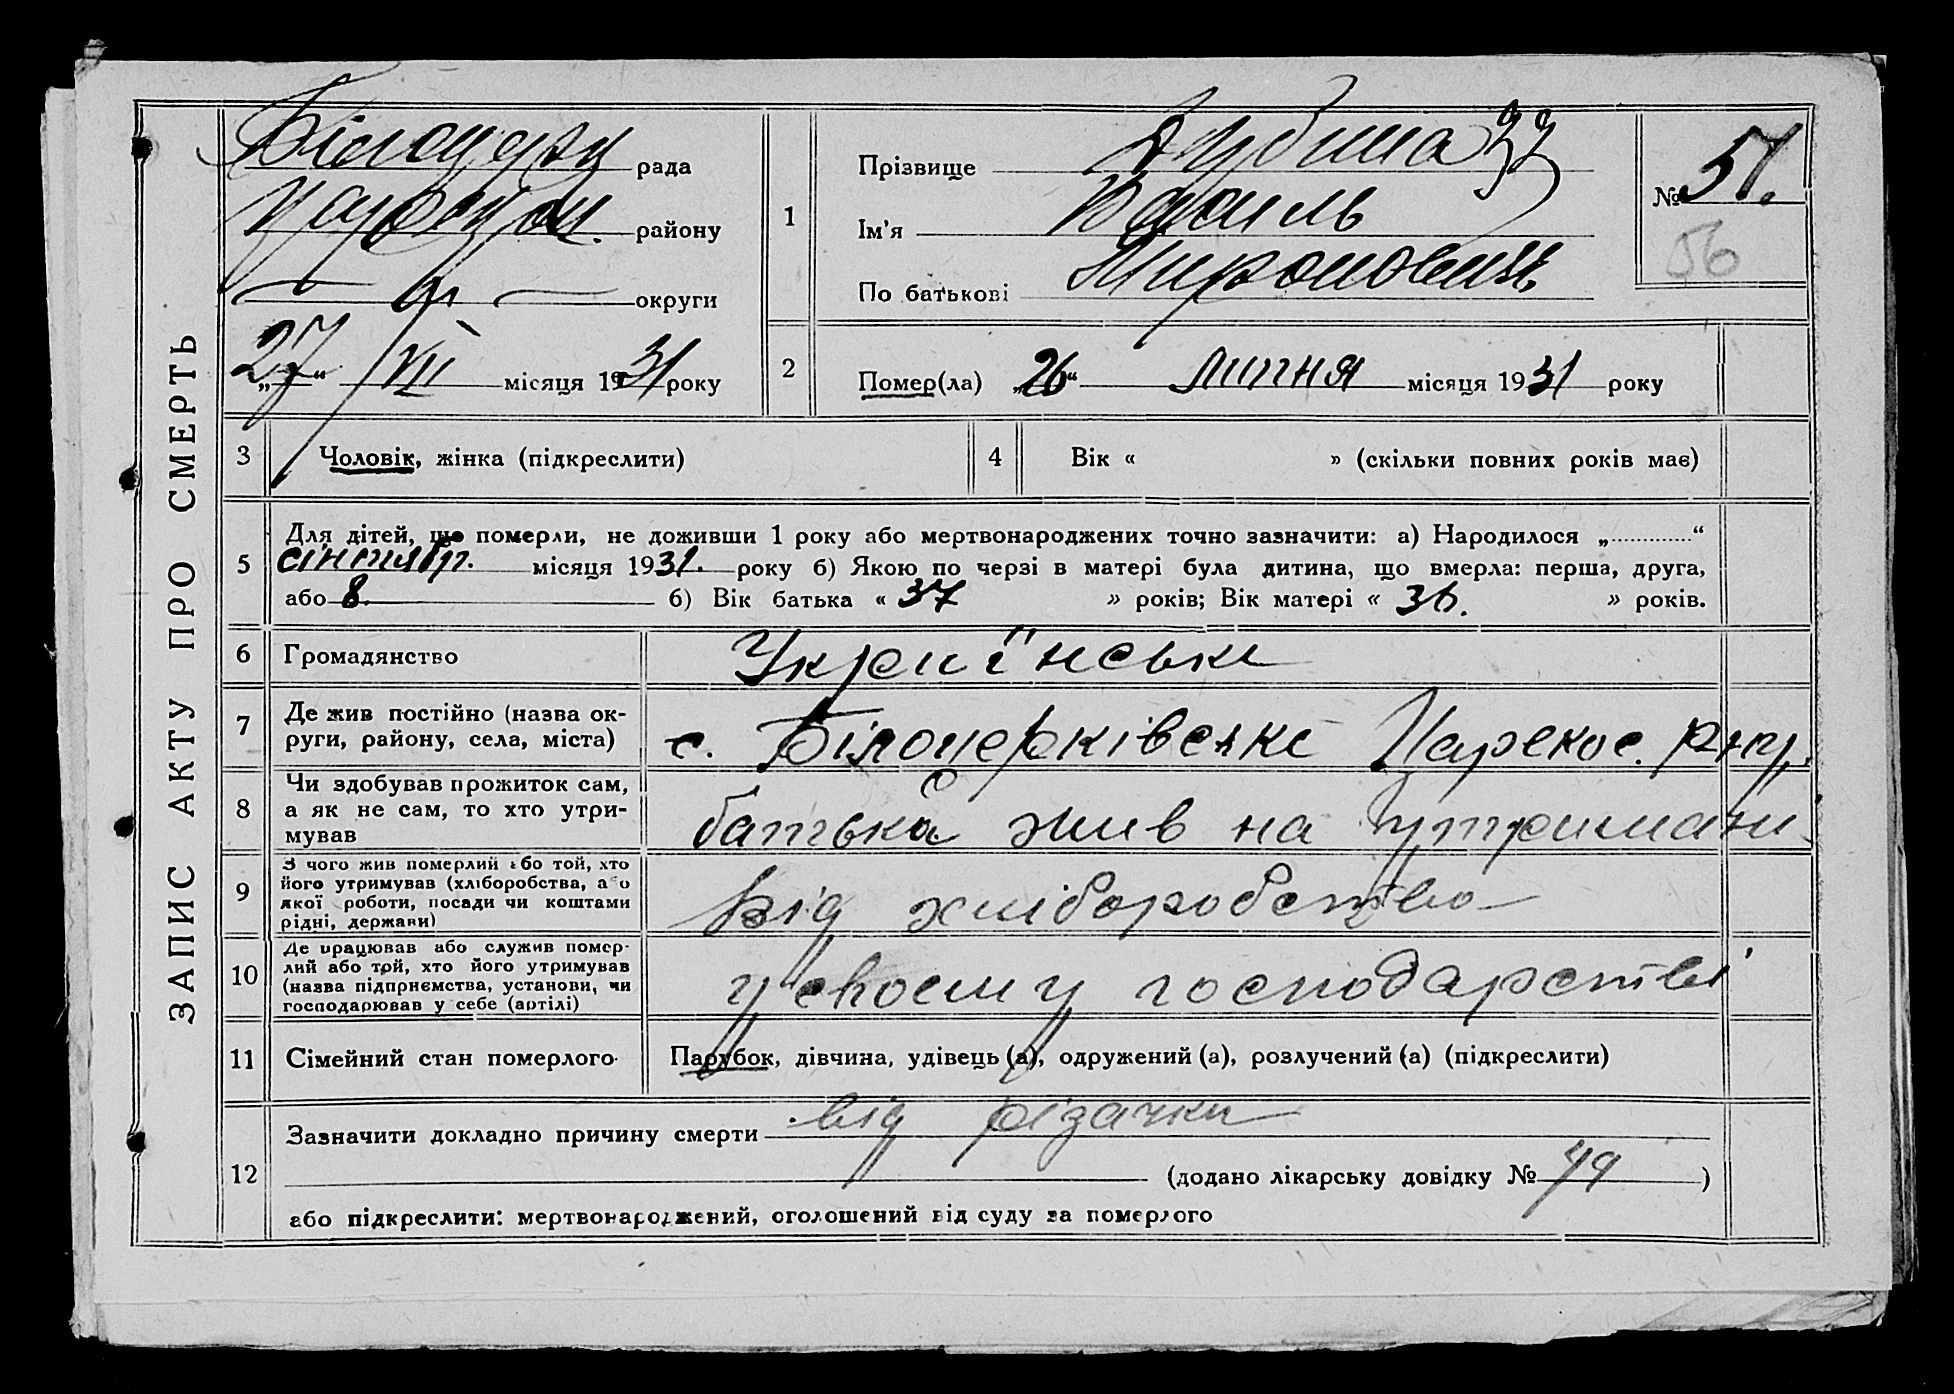 ЗАПИС АКТУ ПРО СМЕРТЬ
рада
району
округи
„27“ VII місяця 1931 року
1
Прізвище
Ім'я Василь
По батькові Миронович
№ 51.
56
2
Помер(ла) „26“ липня місяця 1931 року
3
Чоловік, жінка (підкреслити)
4
Вік « » (скільки повних років має)
5
Для дітей, що померли, не доживши 1 року або мертвонароджених точно зазначити: а) Народилося „ “
місяця 1931. року б) Якою по черзі в матері була дитина, що вмерла: перша, друга,
або 8. б) Вік батька « 37 » років; Вік матері « 36. » років.
6
Громадянство
Украї'нське
7
Де жив постійно (назва ок-
руги, району, села, міста)
с. Білоцерківське
8
Чи здобував прожиток сам,
а як не сам, то хто утри-
мував
батька жив на утримані
9
З чого жив померлий або той, хто
його утримував (хліборобства, або
якої роботи, посади чи коштами
рідні, держави)
від хліборобства
10
Де працював або служив помер-
лий або той, хто його утримував
(назва підприємства, установи, чи
господарював у себе (артілі)
у своєму господарстві
11
Сімейний стан померлого
Парубок, дівчина, удівець (а), одружений (а), розлучений (а) (підкреслити)
12
Зазначити докладно причину смерти від різачки
(додано лікарську довідку № )
або підкреслити: мертвонароджений, оголошений від суду за померлого